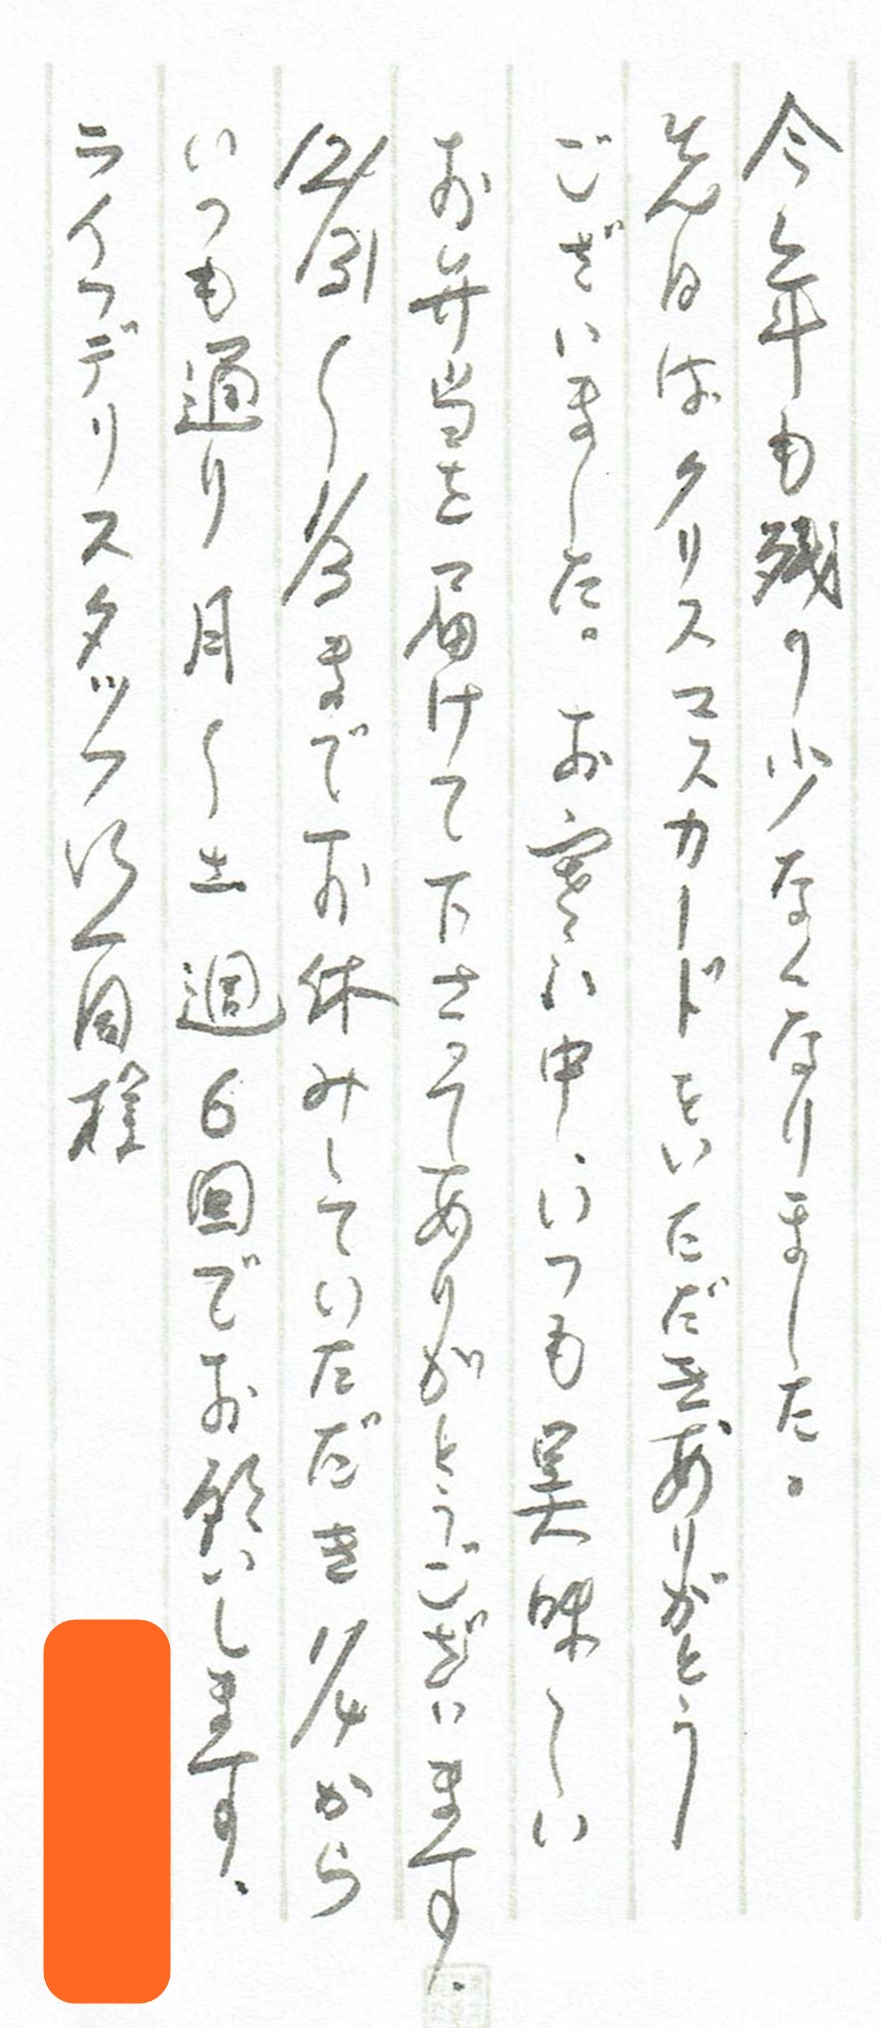 今年も残り少なくなりました。
先日はクリスマスカードをいただきありがとう
ございました。お寒い中、いつも美味しい
お弁当を届けて下さってありがとうございます。
12/31〜1/3までお休みしていただき1/4から
いつも通り月〜土週6回でお願いします。
ライフデリスタッフ御一同様